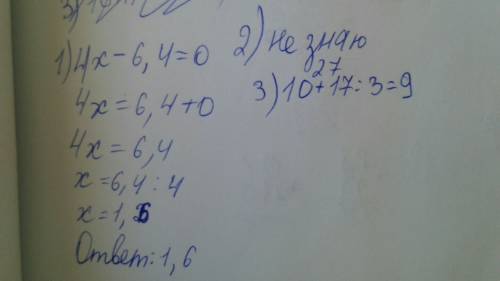 1) 4x - 6,4 = 0
4x = 6,4 + 0
4x = 6,4
x = 6,4 : 4
x = 1,6
Ответ: 1,6
2) не знаю
27
3) 10 + 17 : 3 = 9